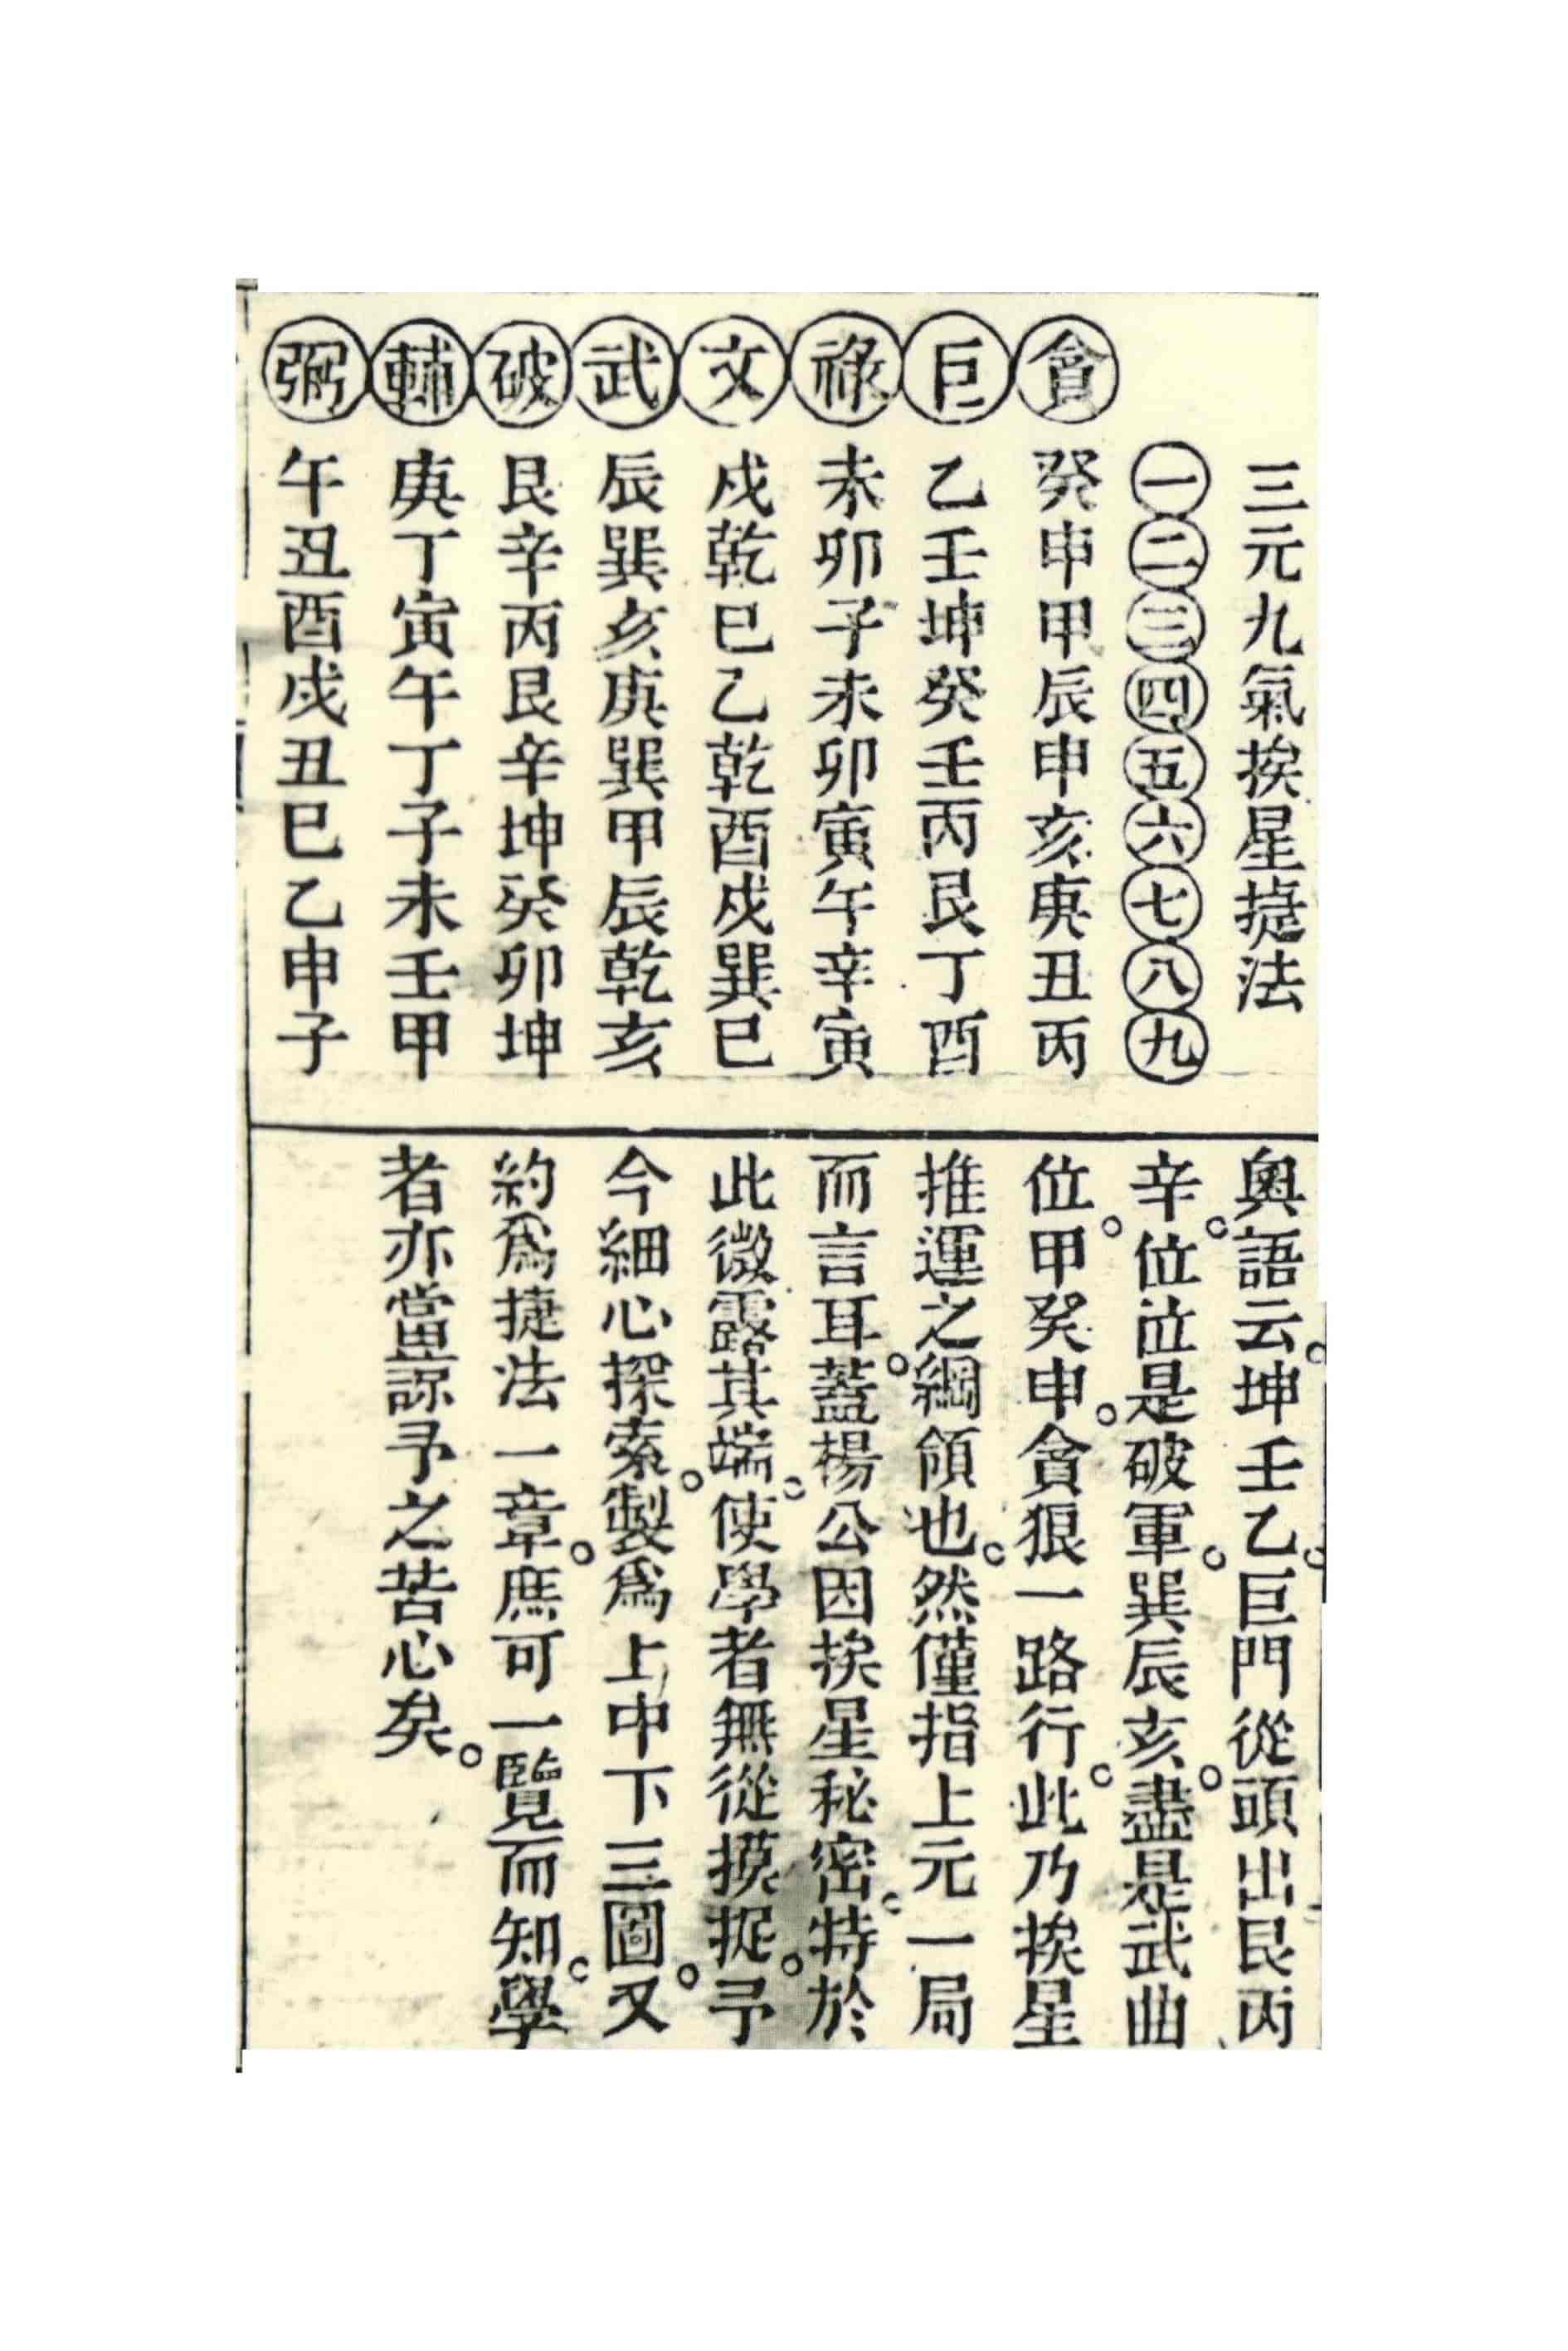 三元九氣挨星㨗法
一二三四五六七八九
貪 癸申甲辰申亥庚丑丙
巨 乙壬坤癸壬丙艮丁酉
祿 未卯子未卯寅午辛寅
文 戌乾巳乙乾酉戌巽巳
武 辰巽亥庚巽甲辰乾亥
破 艮辛丙艮辛坤癸卯坤
輔 庚丁寅午丁子未壬甲
弼 午丑酉戌丑巳乙申子
奧語云。坤壬乙。巨門從頭出艮丙
辛。位位是破軍。巽辰亥。盡是武曲
位。甲癸申。貪狼一路行。此乃挨星
推運之綱領也。然僅指上元一局
而言耳。蓋楊公因挨星秘密。特於
此微露其端。使學者無從摸捉。予
今細心探索。製爲上中下三圖。又
約爲捷法一章。庶可一覽而知。學
者亦當諒予之苦心矣。